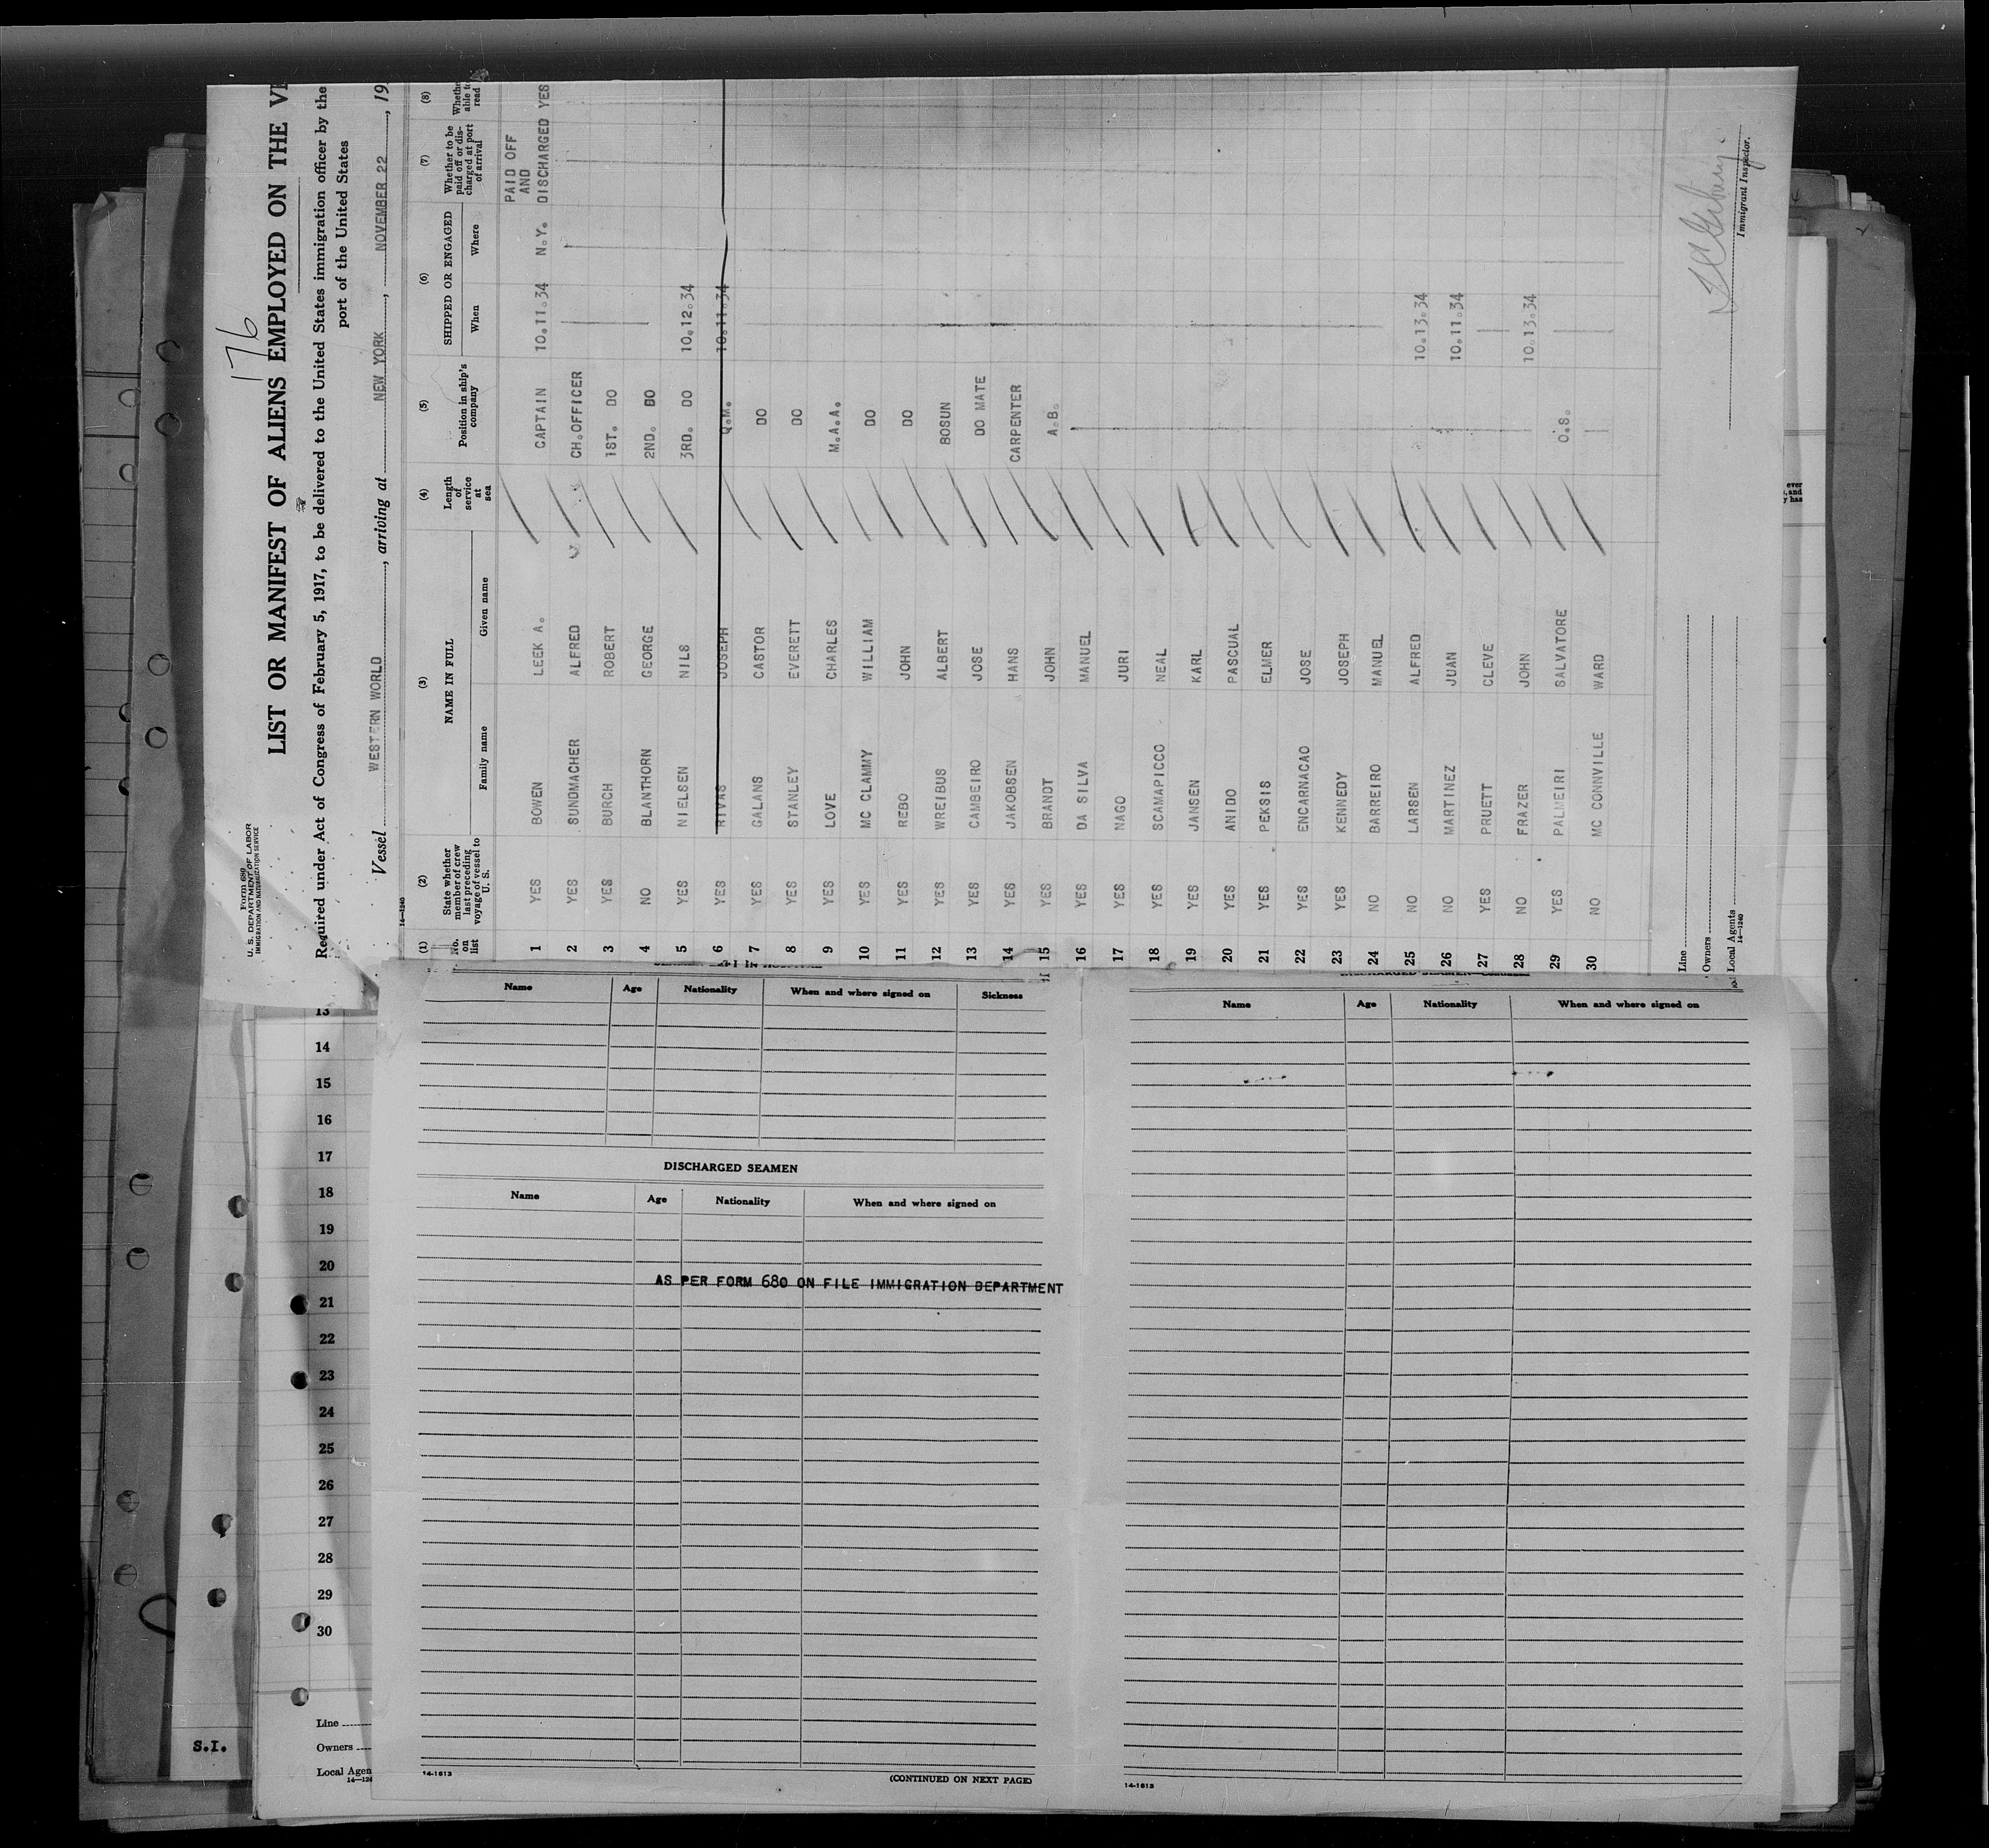 176
Form 680
U. S. DEPARTMENT OF LABOR
IMMIGRATION AND NATURALIZATION SERVICE
LIST OR MANIFEST OF ALIENS EMPLOYED ON THE
Required under Act of Congress of February 5, 1917, to be delivered to the United States immigration officer by the
port of the United States
Vessel WESTERN WORLD, arriving at NEW YORK, NOVEMBER 22, 19
14—1240
(1) (2) (3) (4) (5) (6) (7) (8)
No. on list
State whether member of crew last preceding voyage of vessel to U. S.
NAME IN FULL
Family name Given name
Length of service at sea
Position in ship's company
SHIPPED OR ENGAGED
When Where
Whether to be paid off or discharged at port of arrival
read
PAID OFF
AND
1 YES BOWEN LEEK A. CAPTAIN 10.11.34 N.Y. DISCHARGED YES
2 YES SUNDMACHER ALFRED CH.OFFICER
3 YES BURCH ROBERT 1ST. DO
4 NO BLANTHORN GEORGE 2ND. DO
5 YES NIELSEN NILS 3RD. DO 10.12.34
6 YES RIVAS JOSEPH Q.M. 10.11.34
7 YES GALANS CASTOR DO
8 YES STANLEY EVERETT DO
9 YES LOVE CHARLES M.A.A.
10 YES MC CLAMMY WILLIAM DO
11 YES REBO JOHN DO
12 YES WREIBUS ALBERT BOSUN
13 YES CAMBEIRO JOSE DO MATE
14 YES JAKOBSEN HANS CARPENTER
15 YES BRANDT JOHN A.B.
16 YES DA SILVA MANUEL
17 YES NAGO JURI
18 YES SCAMAPICCO NEAL
19 YES JANSEN KARL
20 YES ANIDO PASCUAL
21 YES PEKSIS ELMER
22 YES ENCARNACAO JOSE
23 YES KENNEDY JOSEPH
24 NO BARREIRO MANUEL
25 NO LARSEN ALFRED 10.13.34
26 NO MARTINEZ JUAN 10.11.34
27 YES PRUETT CLEVE
28 NO FRAZER JOHN 10.13.34
29 YES PALMEIRI SALVATORE O.S.
30 NO MC CONNVILLE WARD
Line
Owners
Local Agents
14—1240
Immigrant Inspector.
ever
and
has
Name Age Nationality When and where signed on Sickness
DISCHARGED SEAMEN
Name Age Nationality When and where signed on
AS PER FORM 680 ON FILE IMMIGRATION DEPARTMENT
14-1613
(CONTINUED ON NEXT PAGE)
Name Age Nationality When and where signed on
14-1613
13
14
15
16
17
18
19
20
21
22
23
24
25
26
27
28
29
30
Line
Owners
Local Agen
S.I.